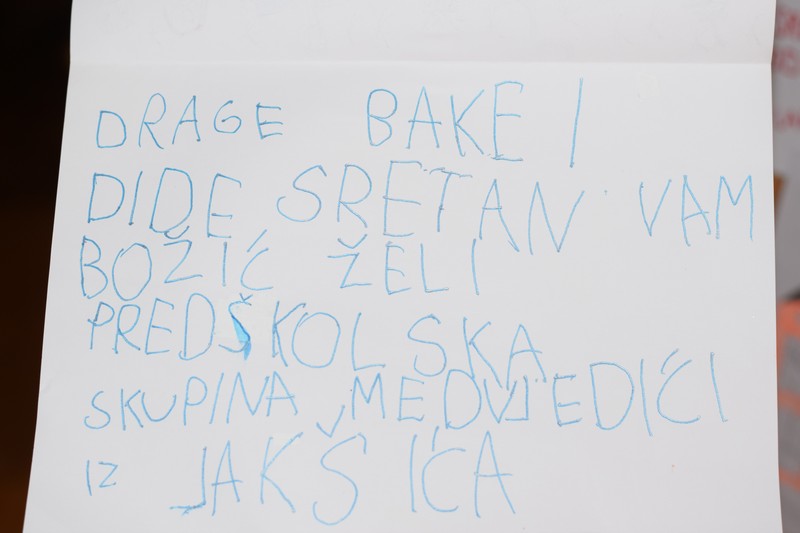 DRAGE BAKE I
DIDE SRETAN VAM
BOŽIĆ ŽELI
PREDŠKOLSKA
SKUPINA MEDVJEDIĆI
IZ JAKŠIĆA